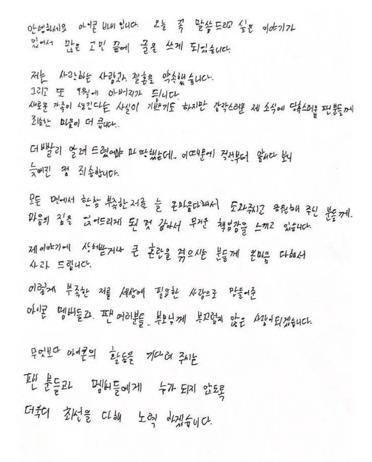 안녕하세요 아이콘 바비 입니다. 오늘 꼭 말씀드리고 싶은 이야기가
있어서 많은 고민 끝에 글을 쓰게 되었습니다.
저는 사랑하는 사람과 결혼을 약속했습니다.
그리고 또 9월에 아버지가 됩니다
새로운 가족이 생긴다는 사실이 기쁘기도 하지만 갑작스러운 제 소식에 당혹스러울 팬분들께
죄송한 마음이 더 큽니다.
더 빨리 알려 드렸어야 마땅했는데.. 이때문에 걱정부터 앞서다 보니
늦어진 점 죄송합니다.
모든 면에서 한참 부족한 저를 늘 온마음다해서 도와주시고 응원해 주신 분들께.
마음의 짐을 얹어드리게 된 것 같아서 무거운 책임감을 느끼고 있습니다.
제 이야기에 상처받거나 큰 혼란을 겪으시는 분들께 온마음 다해서
사과 드립니다.
이렇게 부족한 저를 세상에 필요한 사람으로 만들어준
아이콘 멤버들과. 팬 여러분들.. 부모님께 부끄럽지 않은 사람이 되겠습니다.
무엇보다 아이콘의 활동을 기다려 주시는
팬 분들과 멤버들에게 누가 되지 않도록
더욱더 최선을 다해 노력 하겠습니다.